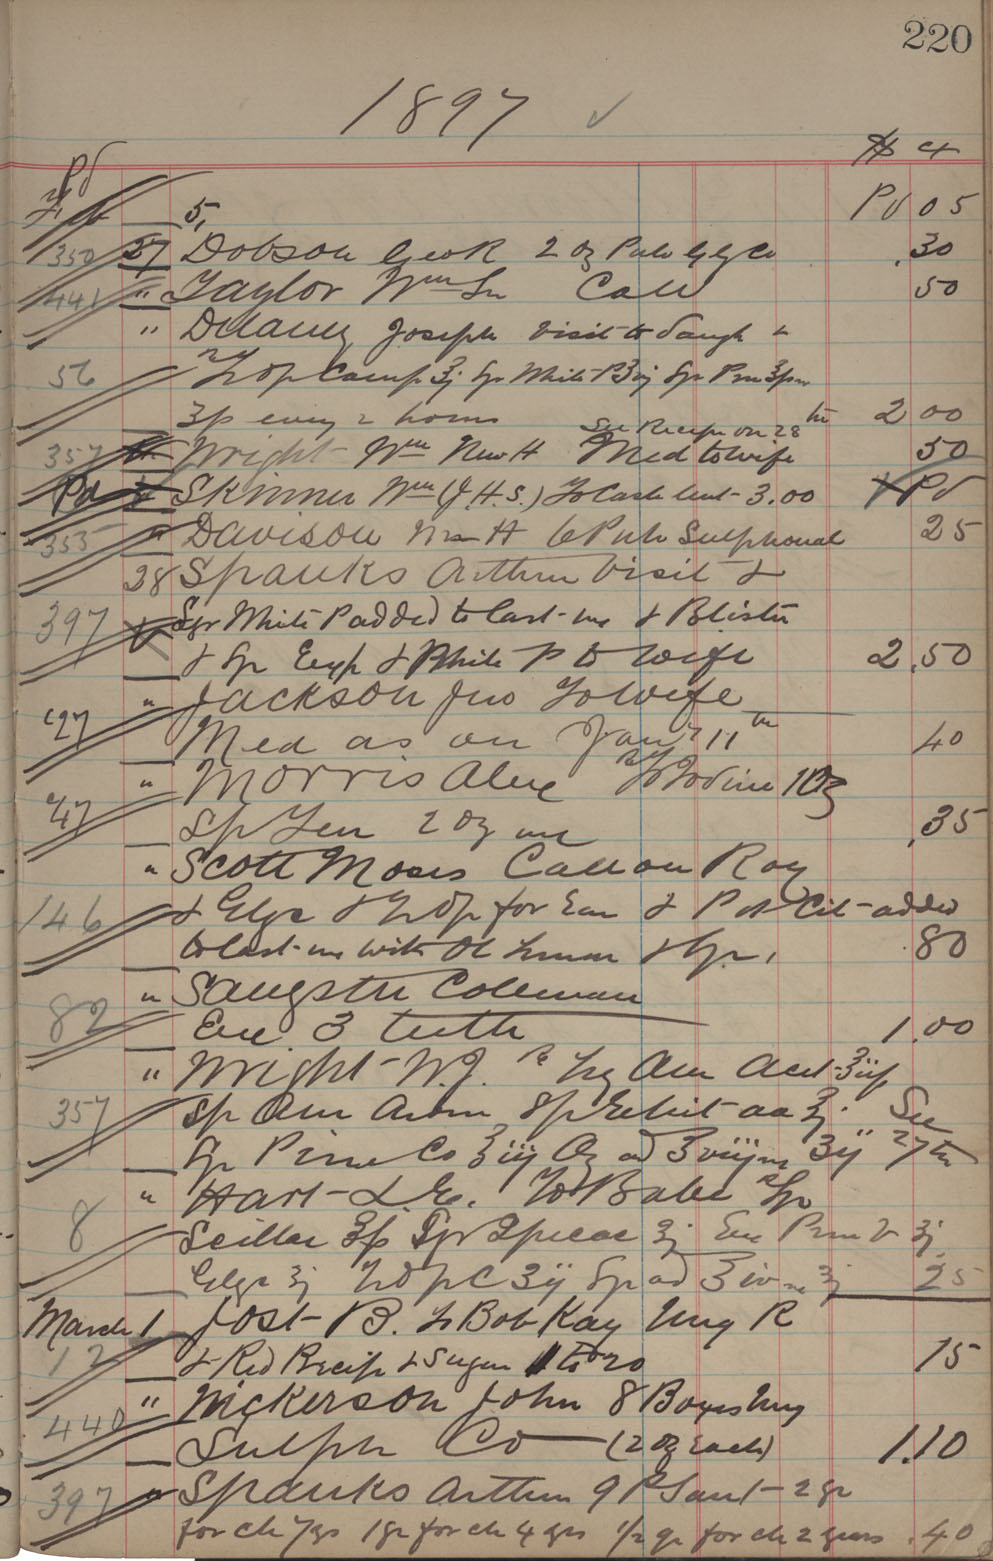 220
1897 ✓
$ ct
Pd
Feb 5, Pd 05
350 27 Dobson Geo R 2 oz Pulv Gly Co .30
441 " Taylor Wm Sr Call 50
" Delaney Joseph Visit to daugh &
56 Camp ʒj Syr White P ʒvj Syr Prun
every 2 hours 2 00
See Recipe on 28th
357 " Wright Wm New H Med to wife 50
Pd " Skinner Wm (J.H.S.) To Cash lent - 3.00 Pd
353 " Davison Mrs H 6 Pulv Sulphonal 25
28 Spanks Arthur Visit &
397 Syr White P added to last - me & Blister
& Syr & White P to wife 2.50
" Jackson Jno To wife
'27 Med as on Jany 11th 40
" Morris Alex To Iodine 1 oz
'47 Sp 2 oz .35
" Scott Moses Call on Roy
146 & Glyc & for Ear & Pot Cit - added
to last - me with & Syr, .80
" Sangster Coleman
82 Exc 3 teeth 1.00
" Wright - W.J. Am Acet
357 Sp Am Arom Sp aa ʒj. See
Syr Pine Co ad 27th
" Hart - L.E. To Babe Syr
8 Scillae Syr Ipecac ʒj Prun V ʒj
Glyc ʒj Syr ad 25
March 1 Jost - B. To Bob Kay Ung R
12 & Red Precip & Sugar 1 to 20 15
" Nickerson John 8 Boxes Ung
440 Sulph Co — (2 oz each) 1.10
397 " Spanks Arthur 9 P Sant - 2 gr
for ch 7 yrs 1 gr for ch 4 yrs 1/2 gr for ch 2 years .40